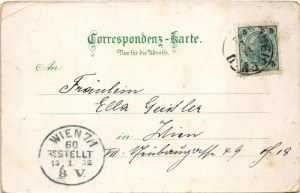 Correspondenz-Karte.
Nur für die Adresse.
An
Fräulein
Ella Geissler
in Wien
VII. Neubaugasse 49
WIEN 7/1
60
BESTELLT
8 V.